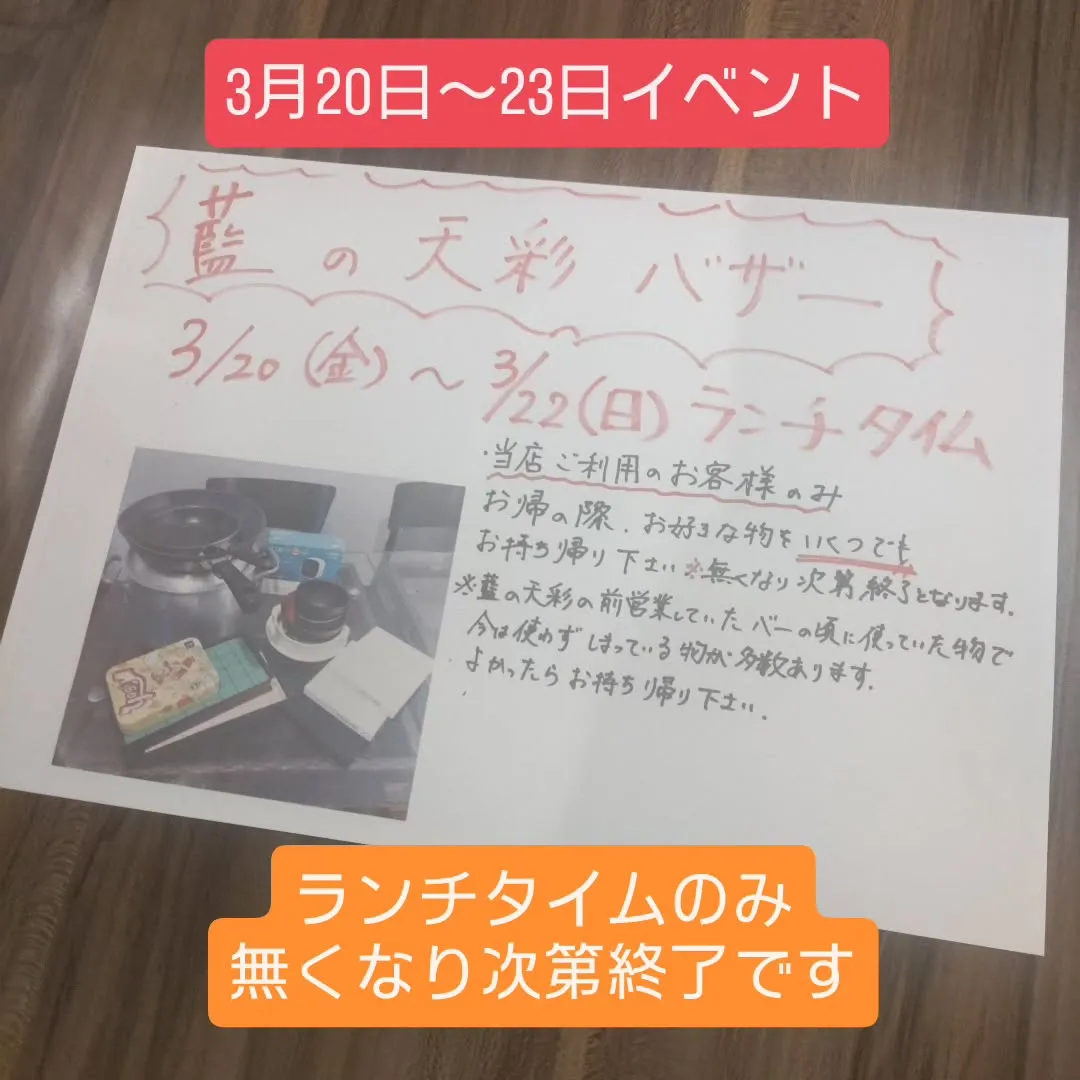 3月20日～23日イベント
藍の天彩 バザー
3/20(金)～3/22(日)ランチタイム
・当店ご利用のお客様のみ
お帰の際、お好きな物をいくつでも
お持ち帰り下さい※無くなり次第終了となります。
※藍の天彩の前営業していたバーの頃に使っていた物で
今は使わずしまっている物が多数あります。
よかったらお持ち帰り下さい。
ランチタイムのみ
無くなり次第終了です